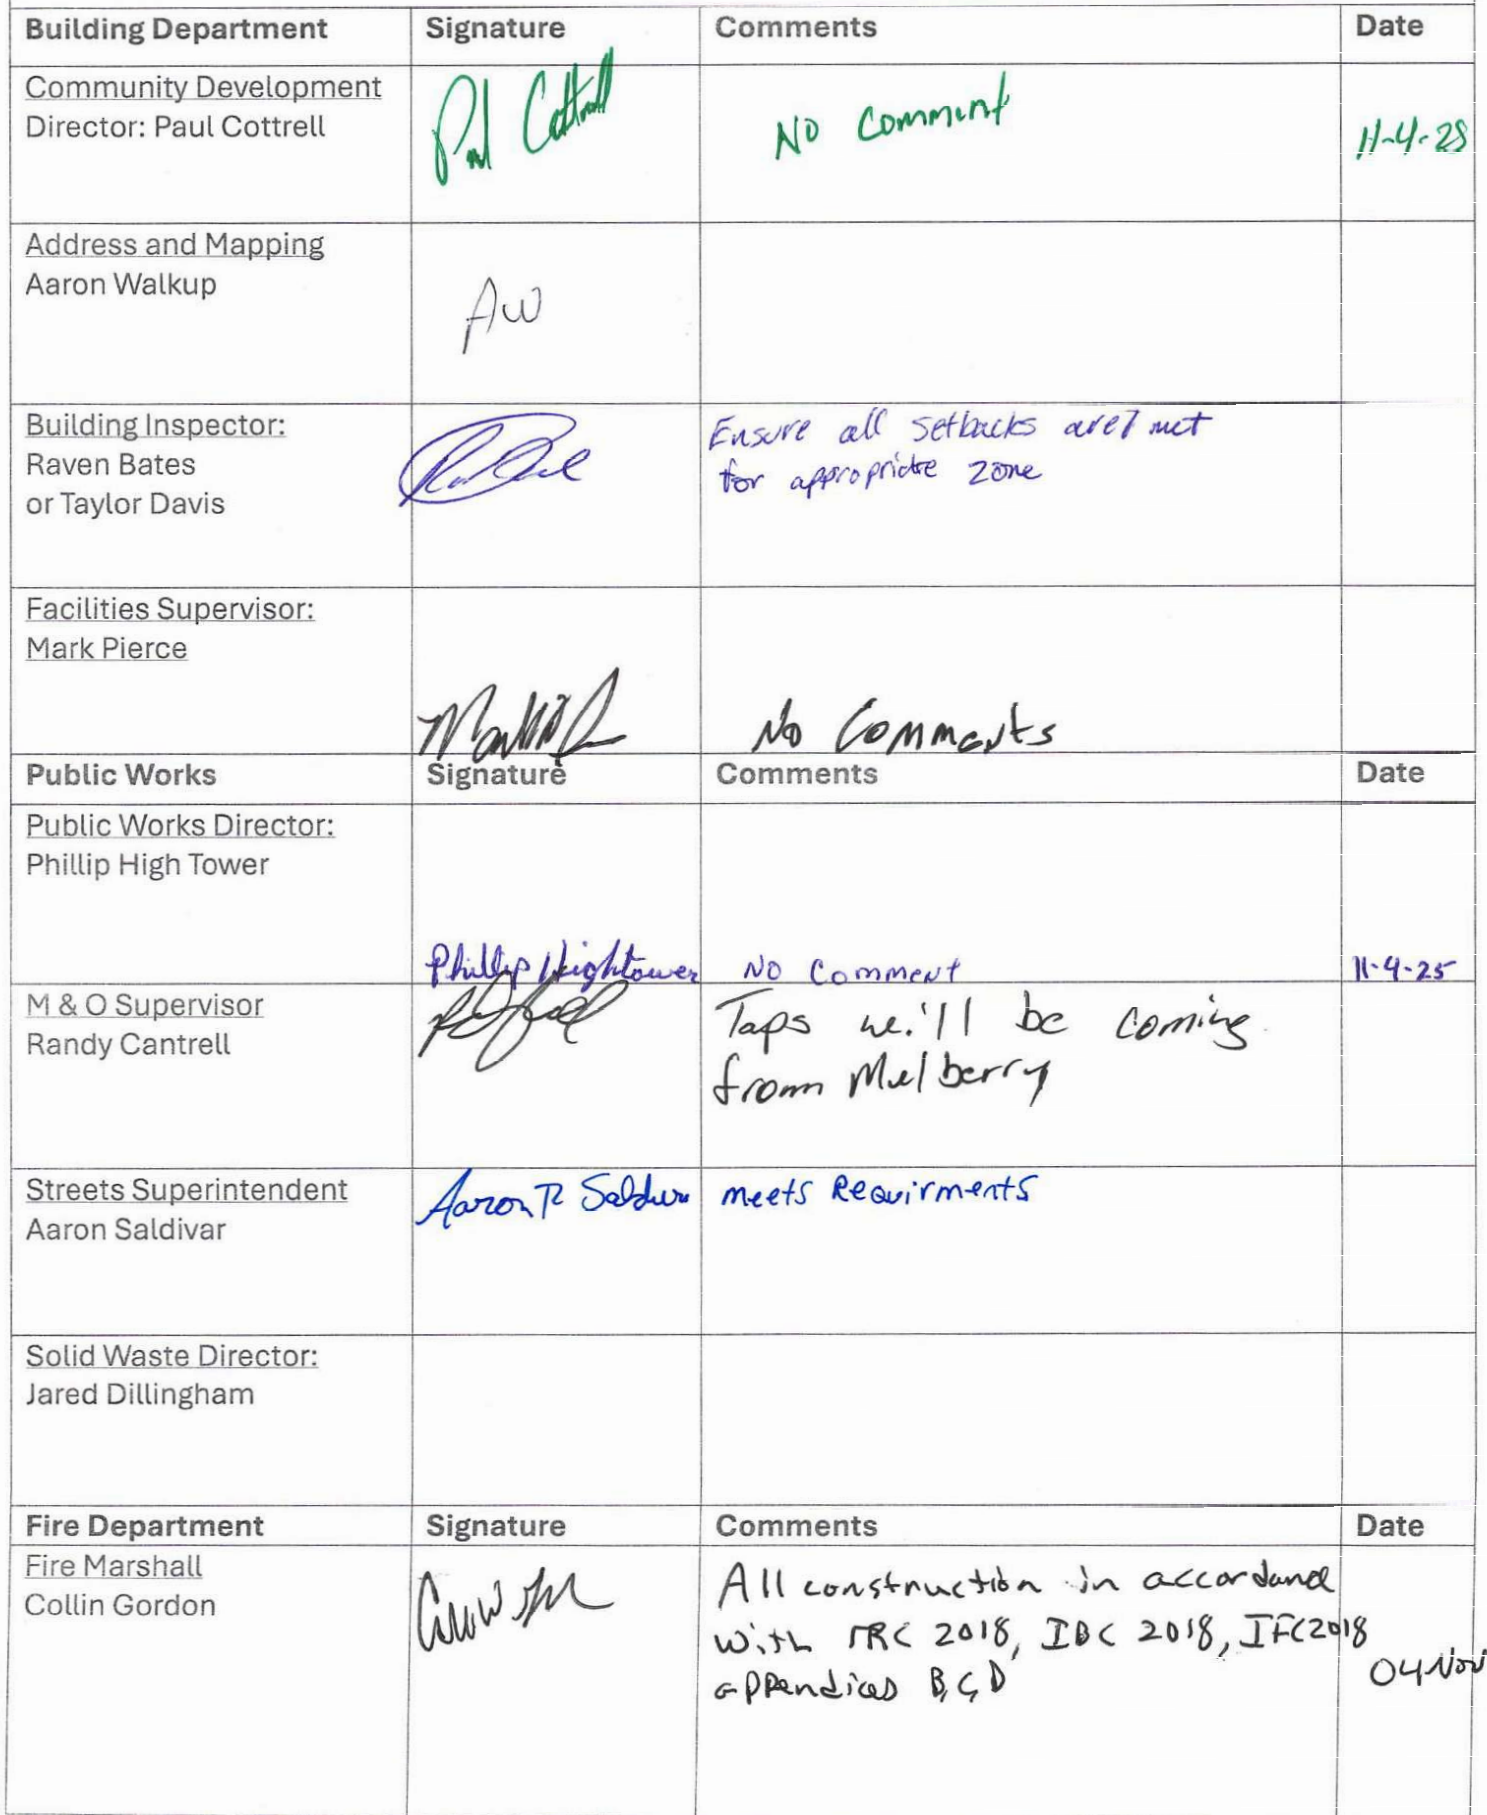 Building Department Signature Comments Date
Community Development
Director: Paul Cottrell
Paul Cottrell No Comment 11-4-25
Address and Mapping
Aaron Walkup
AW
Building Inspector:
Raven Bates
or Taylor Davis
Ensure all setbacks are met
for appropriate zone
Facilities Supervisor:
Mark Pierce
No Comments
Public Works Signature Comments Date
Public Works Director:
Phillip High Tower
Phillip Hightower No Comment 11-4-25
M & O Supervisor
Randy Cantrell
Taps we'll be coming
from Mulberry
Streets Superintendent
Aaron Saldivar
Aaron R Saldivar meets Requirments
Solid Waste Director:
Jared Dillingham
Fire Department Signature Comments Date
Fire Marshall
Collin Gordon
All construction in accordance
with IRC 2018, IBC 2018, IFC 2018
appendices B, C, D
04 Nov